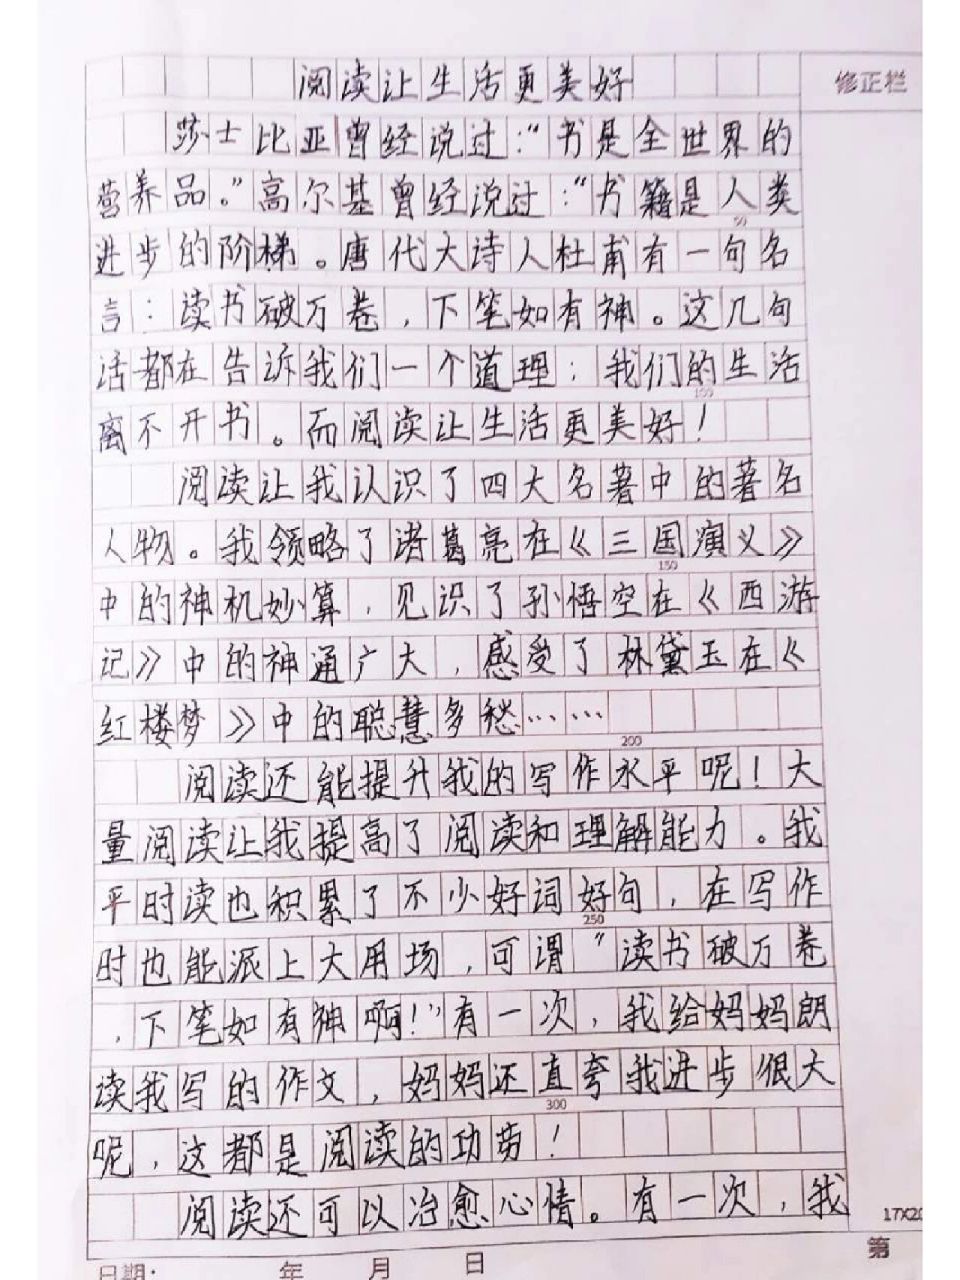 阅读让生活更美好
修正栏
莎士比亚曾经说过:“书是全世界的
营养品。”高尔基曾经说过:“书籍是人类
50
进步的阶梯。唐代大诗人杜甫有一句名
言:读书破万卷,下笔如有神。这几句
话都在告诉我们一个道理:我们的生活
100
离不开书。而阅读让生活更美好!
阅读让我认识了四大名著中的著名
人物。我领略了诸葛亮在《三国演义》
150
中的神机妙算,见识了孙悟空在《西游
记》中的神通广大,感受了林黛玉在《
红楼梦》中的聪慧多愁……
200
阅读还能提升我的写作水平呢!大
量阅读让我提高了阅读和理解能力。我
平时读也积累了不少好词好句,在写作
250
时也能派上大用场,可谓“读书破万卷
,下笔如有神啊!”有一次,我给妈妈朗
读我写的作文,妈妈还直夸我进步很大
300
呢,这都是阅读的功劳!
阅读还可以治愈心情。有一次,我
17X20
第
日期: 年 月 日